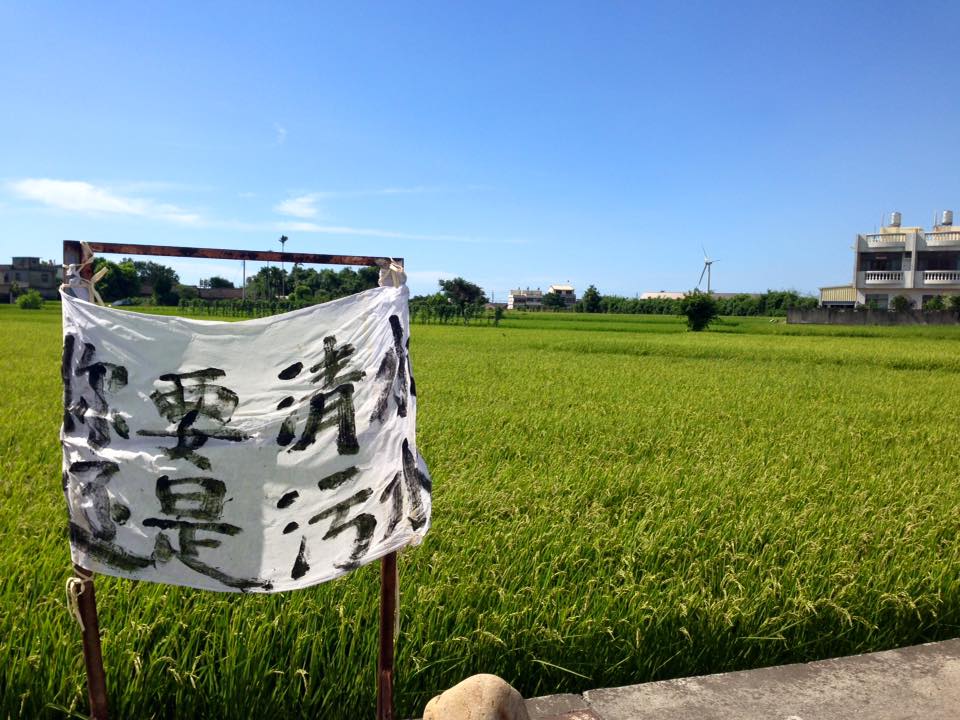 你要清水
還是污水